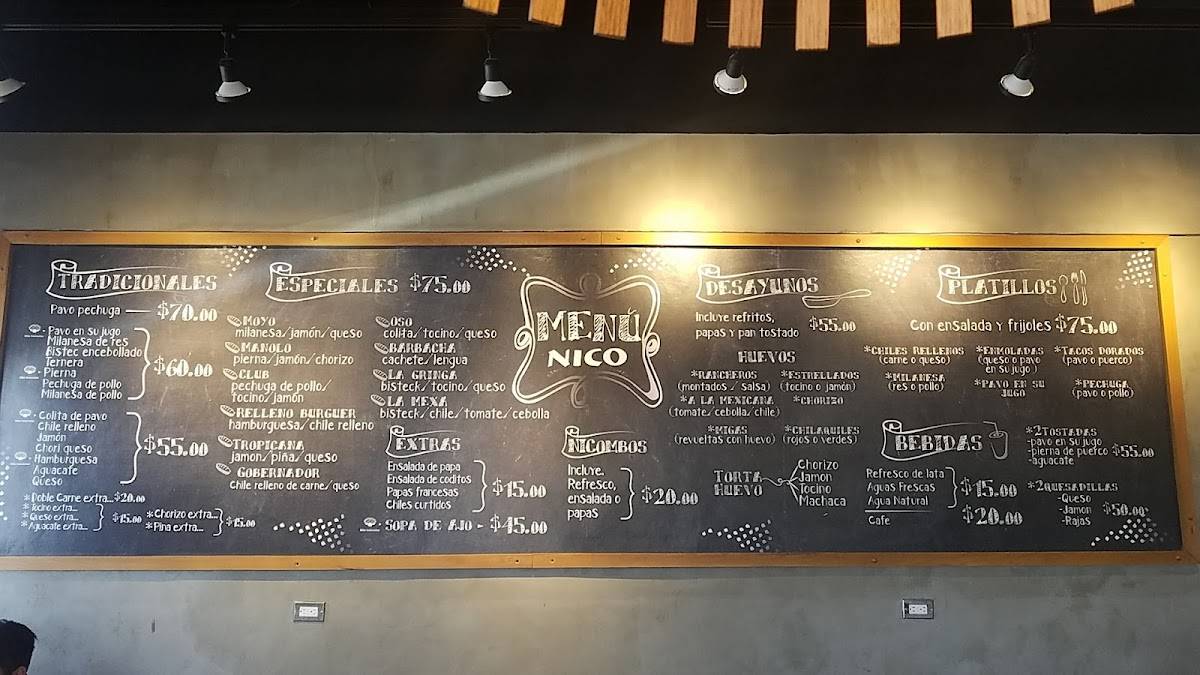 TRADICIONALES
Pavo pechuga — $70.00
- Pavo en su jugo
Milanesa de res
Bistec encebollado
Ternera
- Pierna
Pechuga de pollo
Milanesa de pollo
$60.00
- Colita de pavo
Chile relleno
Jamón
Chori queso
- Hamburguesa
Aguacate
Queso
$55.00
*Doble Carne extra... $20.00
*Tocino extra...
*Queso extra...
*Aguacate extra...
$15.00
*Chorizo extra...
*Pina extra...
$15.00
ESPECIALES $75.00
MOYO
milanesa/jamón/queso
MANOLO
pierna/jamón/chorizo
CLUB
pechuga de pollo/
tocino/jamón
RELLENO BURGUER
hamburguesa/chile relleno
TROPICANA
jamon/piña/queso
GOBERNADOR
Chile relleno de carne/queso
OSO
colita/tocino/queso
BARBACHA
cachete/lengua
LA GRINGA
bisteck/tocino/queso
LA MEXA
bisteck/chile/tomate/cebolla
EXTRAS
Ensalada de papa
Ensalada de coditos
Papas francesas
Chiles curtidos
$15.00
SOPA DE AJO - $45.00
MENÚ
NICO
NICOMBOS
Incluye,
Refresco,
ensalada o
papas
$20.00
DESAYUNOS
Incluye refritos,
papas y pan tostado
$55.00
HUEVOS
*RANCHEROS
(montados / salsa)
*ESTRELLADOS
(tocino o jamón)
*A LA MEXICANA
(tomate/cebolla/chile)
*CHORIZO
*MIGAS
(revueltas con huevo)
*CHILAQUILES
(rojos o verdes)
TORTA
HUEVO
Chorizo
Jamon
Tocino
Machaca
PLATILLOS
Con ensalada y frijoles $75.00
*CHILES RELLENOS
(carne o queso)
*ENMOLADAS
(queso o pavo
en su jugo)
*TACOS DORADOS
(pavo o puerco)
*MILANESA
(res o pollo)
*PAVO EN SU
JUGO
*PECHUGA
(pavo o pollo)
BEBIDAS
Refresco de lata
Aguas Frescas
Agua Natural
$15.00
Cafe
$20.00
*2TOSTADAS
-pavo en su jugo
-pierna de puerco
-aguacate
$55.00
*2QUESADILLAS
-Queso
-Jamon
-Rajas
$50.00